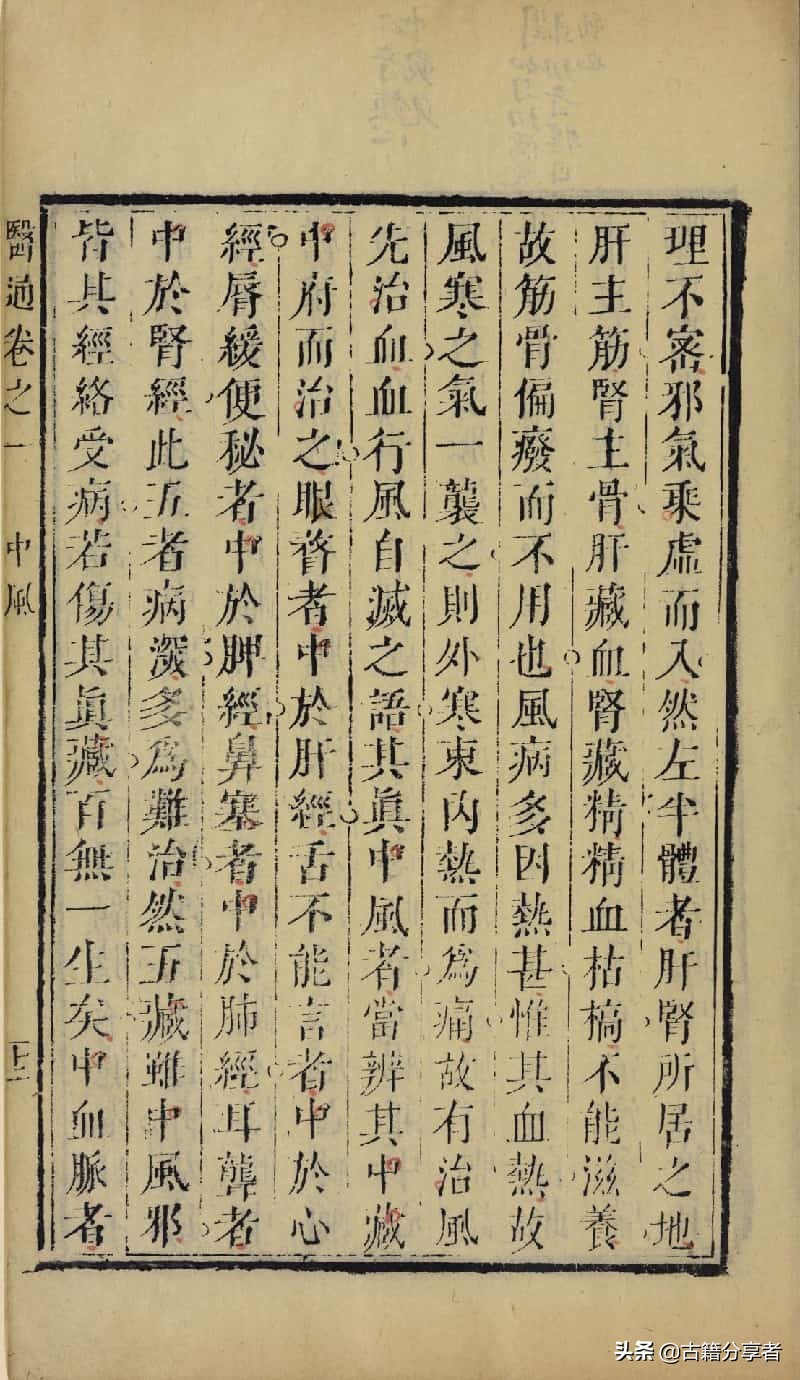 理不密邪氣乘虛而入然左半體者肝腎所居之地
肝主筋腎主骨肝藏血腎藏精精血枯槁不能滋養
故筋骨偏癈而不用也風病多因熱甚惟其血熱故
風寒之氣一襲之則外寒束內熱而爲痛故有治風
先治血血行風自滅之語其眞中風者當辨其中藏
中府而治之眼瞀者中於肝經舌不能言者中於心
經脣緩便秘者中於脾經鼻塞者中於肺經耳聾者
中於腎經此五者病深多爲難治然五藏雖中風邪
皆其經絡受病若傷其眞藏百無一生矣中血脈者
醫通卷之一 中風
头条 @古籍分享者